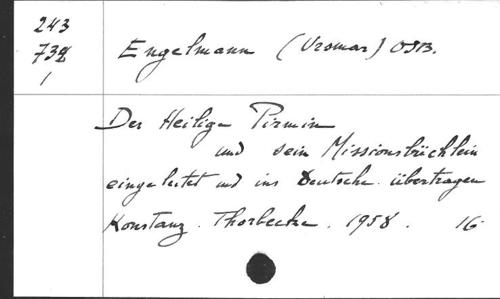 243
739
1
Engelmann (Ursmar) OSB.
Der Heilige Pirmin
und sein Missionsbüchlein
eingeleitet und ins Deutsche übertragen
Konstanz. Thorbecke. 1958. 16